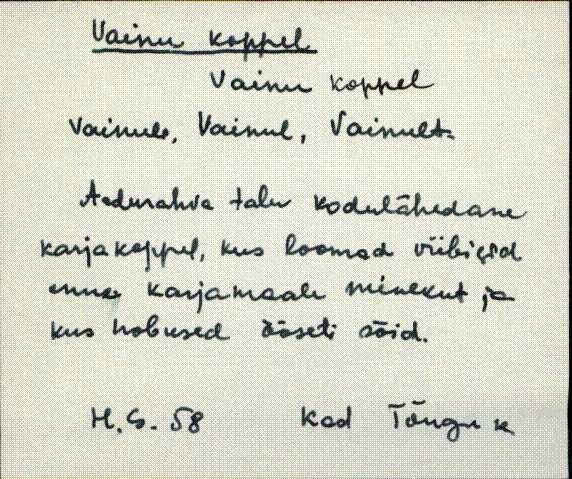 Vainu koppel
Vainu koppel
Vainule, Vainul, Vainult.
Aedurahva talu kodulähedane
karjakoppel, kus loomad viibisid
enne karjamaale minekut ja
kus hobused ööseti sõid.
H.S. 58 Kad Tõnga k